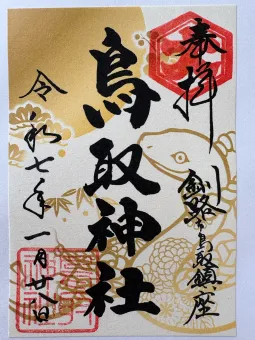 奉拝
釧路乃鳥取鎮座
鳥取神社
令和七年一月廿八日